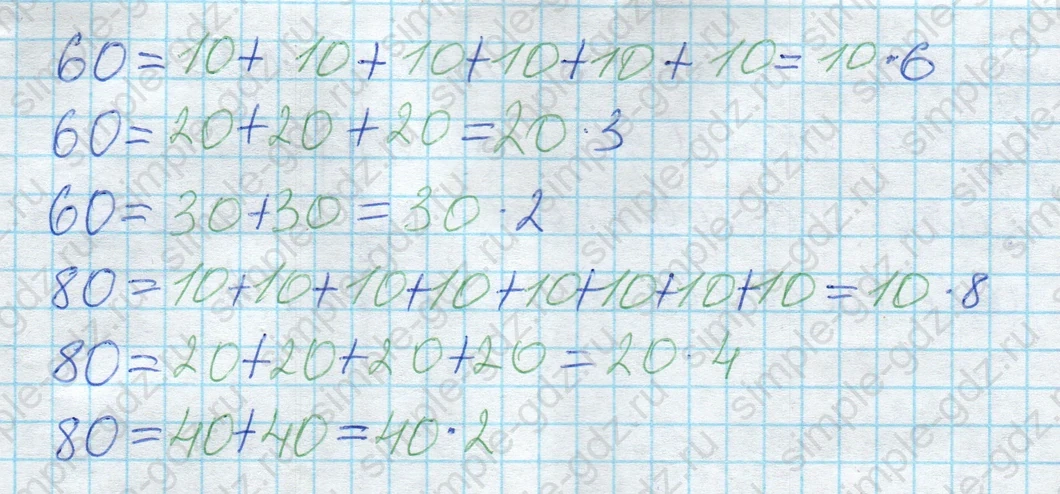 60=10+10+10+10+10+10=10·6
60=20+20+20=20·3
60=30+30=30·2
80=10+10+10+10+10+10+10+10=10·8
80=20+20+20+20=20·4
80=40+40=40·2
simple-gdz.ru